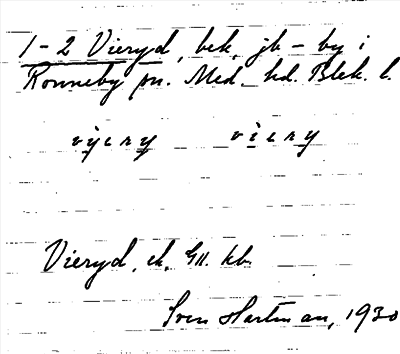 1-2 Vieryd, bek. jb - by i
Ronneby sn. Med. hd. Blek. l.
vi̇ery vi̇ery
Vieryd, ek. Gll. kb.
Sven Hartman, 1930